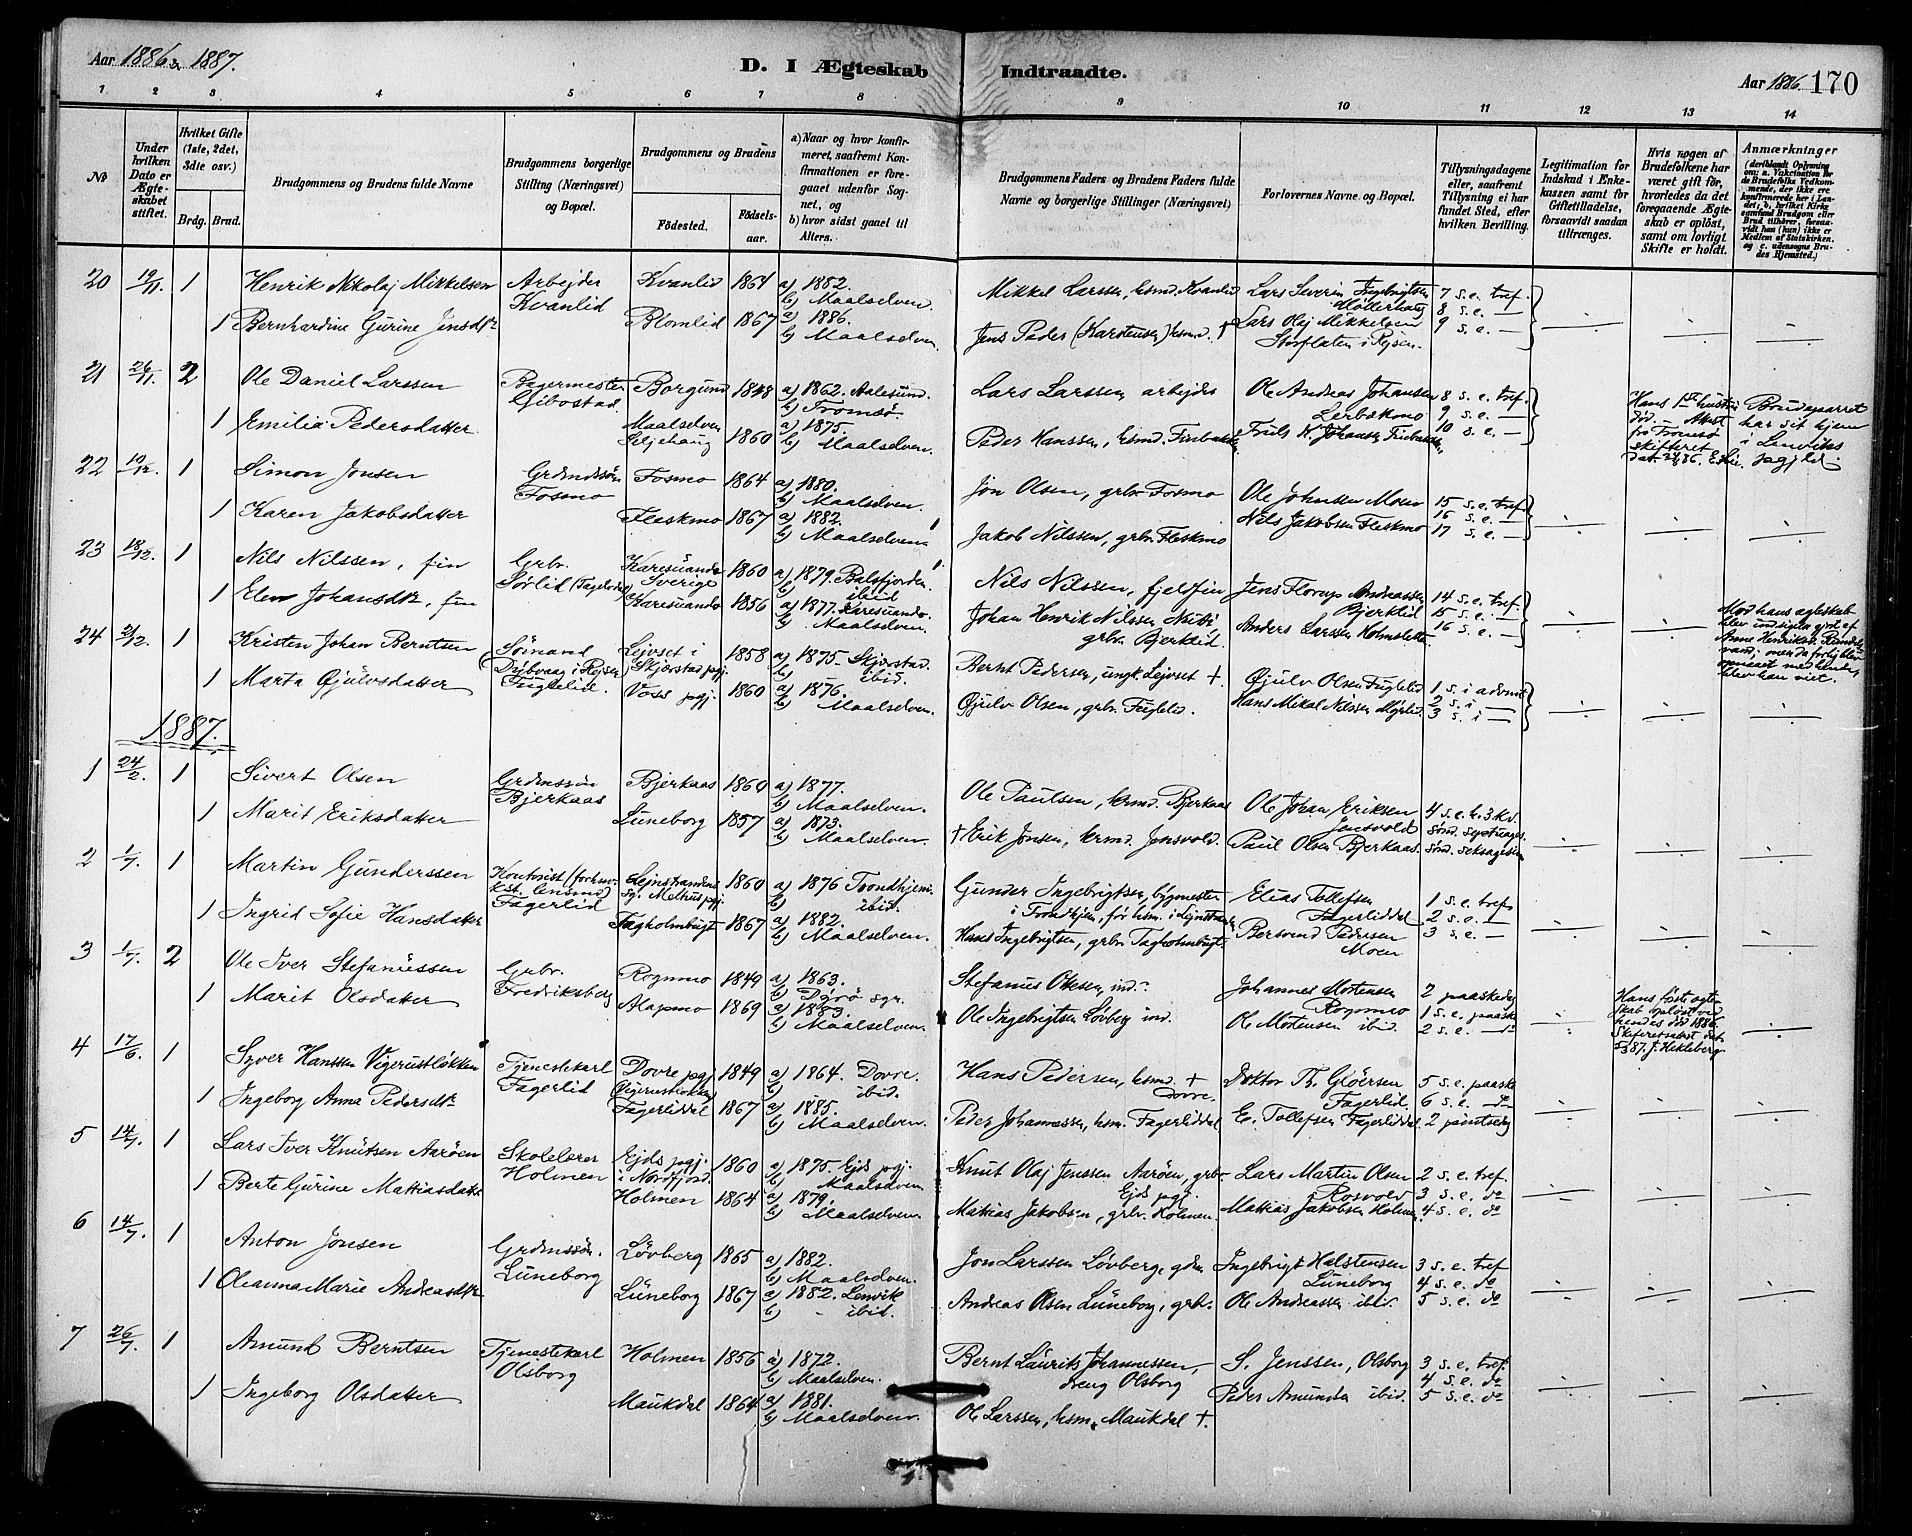 Aar 1886 & 1887.
D. I Ægteskab Indtraadte.
Aar 1886. 170
1 2 3 4 5 6 7 8 9 10 11 12 13 14
No
Under hvilken Dato er Ægteskabet stiftet.
Hvilket Gifte (1ste, 2det, 3die osv.)
Brdg. Brud.
Brudgommens og Brudens fulde Navne
Brudgommens borgerlige Stilling (Næringsvei) og Bopæl.
Brudgommens og Brudens
Fødested. Fødselsaar.
a) Naar og hvor konfirmeret, saafremt Konfirmationen er foregaaet udenfor Sognet, og
b) hvor sidst gaaet til Alters.
Brudgommens Faders og Brudens Faders fulde Navne og borgerlige Stillinger (Næringsvei)
Forlovernes Navne og Bopæl.
Tillysningsdagene eller, saafremt Tillysning ei har fundet Sted, efter hvilken Bevilling.
Legitimation for Indskud i Enkekassen samt for Giftetilladelse, forsaavidt saadan tiltrænges.
Hvis nogen af Brudefolkene har været gift før, hvorledes da det foregaaende Ægteskab er opløst, samt om lovligt Skifte er holdt.
Anmærkninger
(deriblandt Oplysning om: a. Vaccination for de Brudefolks Vedkommende, der ikke ere konfirmerede her i Landet; b. hvilket Kirkesamfund Brudgom eller Brud tilhører, forsaavidt han (hun) ikke er Medlem af Statskirken, og c. udensogns Brudes Hjemsted.)
20 19/11 1 Henrik Nikolaj Mikkelsen Arbejder Kvanlid Kvanlid 1864 a) 1882. b) Maalselven. Mikkel Larssen, hsmd. Kvanlid Lars Severin Ingebrigtsen Møllerhaug 7 s.e. tref.
1 Bernhardine Gurine Jensdtr Blomlid 1867 a) 1886. b) Maalselven. Jens Peder (Karstensen) hsmd. † Lars Olaj Mikkelsen Storflaten i Rejsen. 8 s.e. — 9 s.e. —
21 26/11 2 Ole Daniel Larssen Bagermester Gibostad. Borgund 1848 a) 1862. Aalesund. b) Tromsø. Lars Larssen, arbejder Ole Andreas Johansen Lerbskmo 8 s.e. tref. 9 s.e. —
1 Emilia Pedersdatter Maalselven Seljehaug 1860 a) 1875. b) Maalselven. Peder Hanssen, hsmd. Finbakken 10 s.e. —
Hans 1ste hustru død. Attest fra Tromsø skifteret
Brudeparret har sit hjem i Lenviks
22 10/12 1 Simon Jonsen Grdmdssøn Fosmo Fosmo 1864 a) 1880. b) Maalselven. Jon Olsen, grbr. Fosmo Ole Johnsen Moen 15 s.e. tref
1 Karen Jakobsdatter Fleskmo 1867 a) 1882. b) Maalselven Jakob Nilssen, grbr. Fleskmo Nils Jakobsen Fleskmo 16 s.e. — 17 s.e. —
23 18/12 1 Nils Nilssen, fin Grbr. Sørlid (Fagerlid) Karesuando Sverige 1860 a) 1879. Balsfjorden. b) ibid Nils Nilssen, fjeldfin Jens Florup Andreassen Bjerklid 14 s.e. tref.
1 Elen Johansdtr, fin Karesuando 1856 a) 1877. Karesuando. b) Maalselven. Johan Henrik Nilssen grbr. Bjerklid. Anders Larssen Holmslette 15 s.e. — 16 s.e. —
24 2/12 1 Kristen Johan Berntsen Sømand Dybvaag i Rejsen Fuglelid. Lejvset i Skjerstad pgj. 1858 a) 1875 Skjerstad. b) ibid. Bernt Pedersen, ungk. Lejvset †. Øjulv Olsen Fuglelid 1 s. i advent
1 Marta Øjulvsdatter Voss pgj. 1860 a) 1876. b) Maalselven. Øjulv Olsen, grbr. Fuglelid. Hans Mikal Nilssen Myrlid. 2 s. i — 3 s. i —
Mod hans ægteskab blev indsigelse gjort af Anne Henriksd.
blev han viet.
1887.
1 24/2 1 Sivert Olsen Grdmssøn Bjerkaas Bjerkaas 1860 a) 1877. b) Maalselven. Ole Paulsen, hsmd. Bjerkaas Ole Johan Eriksen Jensvold 4 s.e. h. 3 kv.
1 Marit Eriksdatter Luneborg 1857 a) 1873. b) Maalselven. † Erik Jonsen, hsmd. Jensvold. Paul Olsen Bjerkaas. sønd. septuages. sønd. seksagesim
2 1/7 1 Martin Gunderssen Kontorist Fagerlid Lejnstrandens sg. Melhus pgj. 1860 a) 1876 Trondhjem. b) ibid. Gunder Ingebrigtsen, bygmester i Trondhjem, før hsm. i Lejnstranden Elias Tollefsen Fagerliddal 1 s.e. tref.
1 Ingrid Sofie Hansdatter Fagholmbugt 1867 a) 1882. b) Maalselven. Hans Ingebrigtsen, grbr. Fagholmbugt Bersvend Pedersen Moen 2 s.e. — 3 s.e. —
3 1/7. 2 Ole Iver Stefanussen Grbr. Fredriksberg Rognmo 1849 a) 1863. b) Dyrø sgn. Stefanus Olsen, ind. Johannes Mortensen Rognmo 2 paaskedag
1 Marit Olsdatter Alapmo 1869 a) 1883. b) Maalselven. Ole Ingebrigtsen Løvberg ind. Ole Mortensen ibid. 1 s.e. paaske 2 s.e. —
Hans første ægteskab opløst ved hendes død 1886. Skifteretsattest dat. 5/3 87. J. Hekleberg
4 17/6 1 Syver Hanssen Vigerustløkken Tjenestekarl Fagerlid Dovre pgj (Vigerustløkken) 1849 a) 1864. Dovre. b) ibid. Hans Pedersen, hsmd. † Dovre. Doktor Th. Gløersen Fagerlid. 5 s.e. paaske
1 Ingeborg Anna Pedersdtr Fagerliddal 1867 a) 1885. b) Maalselven. Peder Johannessen, hsm. Fagerliddal E. Tollefsen Fagerliddal 6 s.e. — 2 pintsedag
5 14/7. 1 Lars Iver Knutsen Aarøen Skolelærer Holmen Ejds pgj. i Nordfjord. 1860 a) 1875. Ejds pgj. b) Maalselven. Knut Olaj Jenssen Aarøen, grbr. Ejds pgj. Lars Martin Olsen Rosvold 2 s.e. tref.
1 Berte Gurine Mattiasdatter Holmen 1864 a) 1879. b) Maalselven. Mattias Jakobsen, grbr. Holmen. Mattias Jakobsen Holmen. 3 s.e. do 4 s.e. do
6 14/7. 1 Anton Jonsen Grdmssøn. Luneborg Løvberg 1865 a) 1882. b) Maalselven. Jon Larssen Løvberg, gdm. Ingebrigt Halstensen Luneborg 3 s.e. tref
1 Oleanna Marie Andreasdtr Luneborg 1867 a) 1882. Lenvik b) — ibid. Andreas Olsen Luneborg, grbr. Ole Andreassen ibid. 4 s.e. do 5 s.e. do
7 26/7. 1 Amund Berntsen Tjenestekarl Olsborg Holmen 1856 a) 1872. b) Maalselven. Bernt Laurits Johannessen, dreng Olsborg S. Jenssen, Olsborg 3 s.e. tref.
1 Ingeborg Olsdatter Maukdal 1864 a) 1881. b) Maalselven. Ole Larssen, hsm. Maukdal †. Peder Amundsen ibid. 4 s.e. do 5 s.e. do